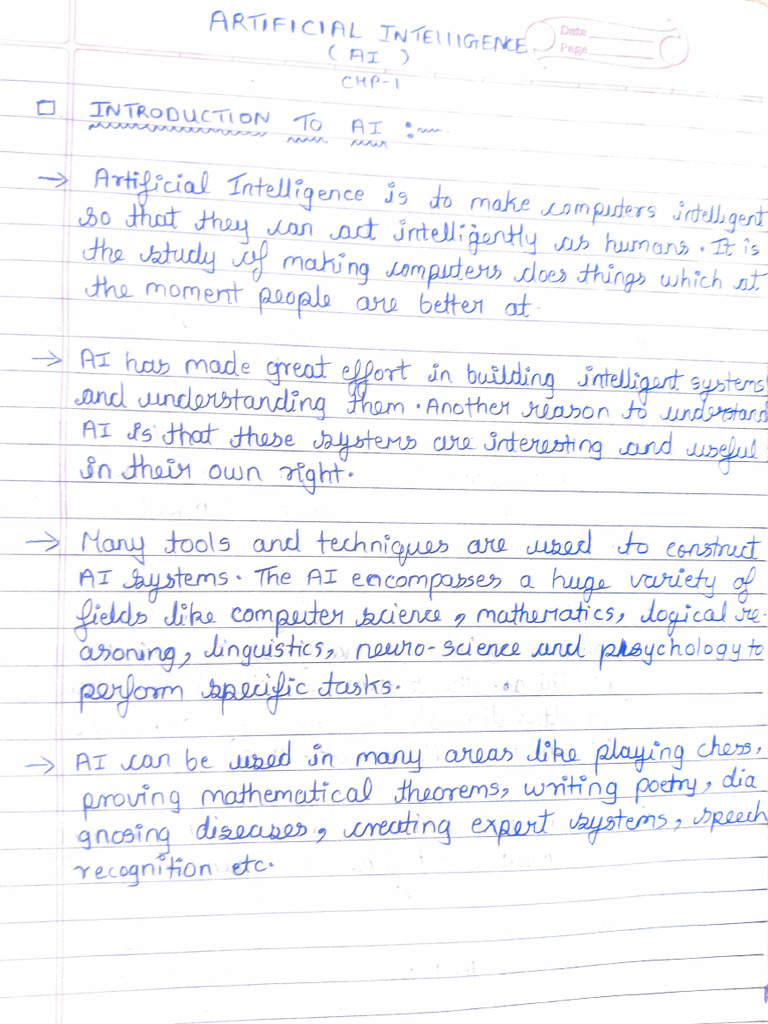 ARTIFICIAL INTELLIGENCE
Date
Page
(AI)
CHP-1
INTRODUCTION TO AI :-
→ Artificial Intelligence is to make computers intelligent
so that they can act intelligently as humans. It is
the study of making computers does things which at
the moment people are better at.
→ AI has made great effort in building intelligent systems
and understanding them. Another reason to understand
AI is that these systems are interesting and useful
in their own right.
→ Many tools and techniques are used to construct
AI systems. The AI encompasses a huge variety of
fields like computer science, mathematics, logical re-
asoning, linguistics, neuro-science and psychology to
perform specific tasks.
→ AI can be used in many areas like playing chess,
proving mathematical theorems, writing poetry, dia
gnosing diseases, creating expert systems, speech
recognition etc.